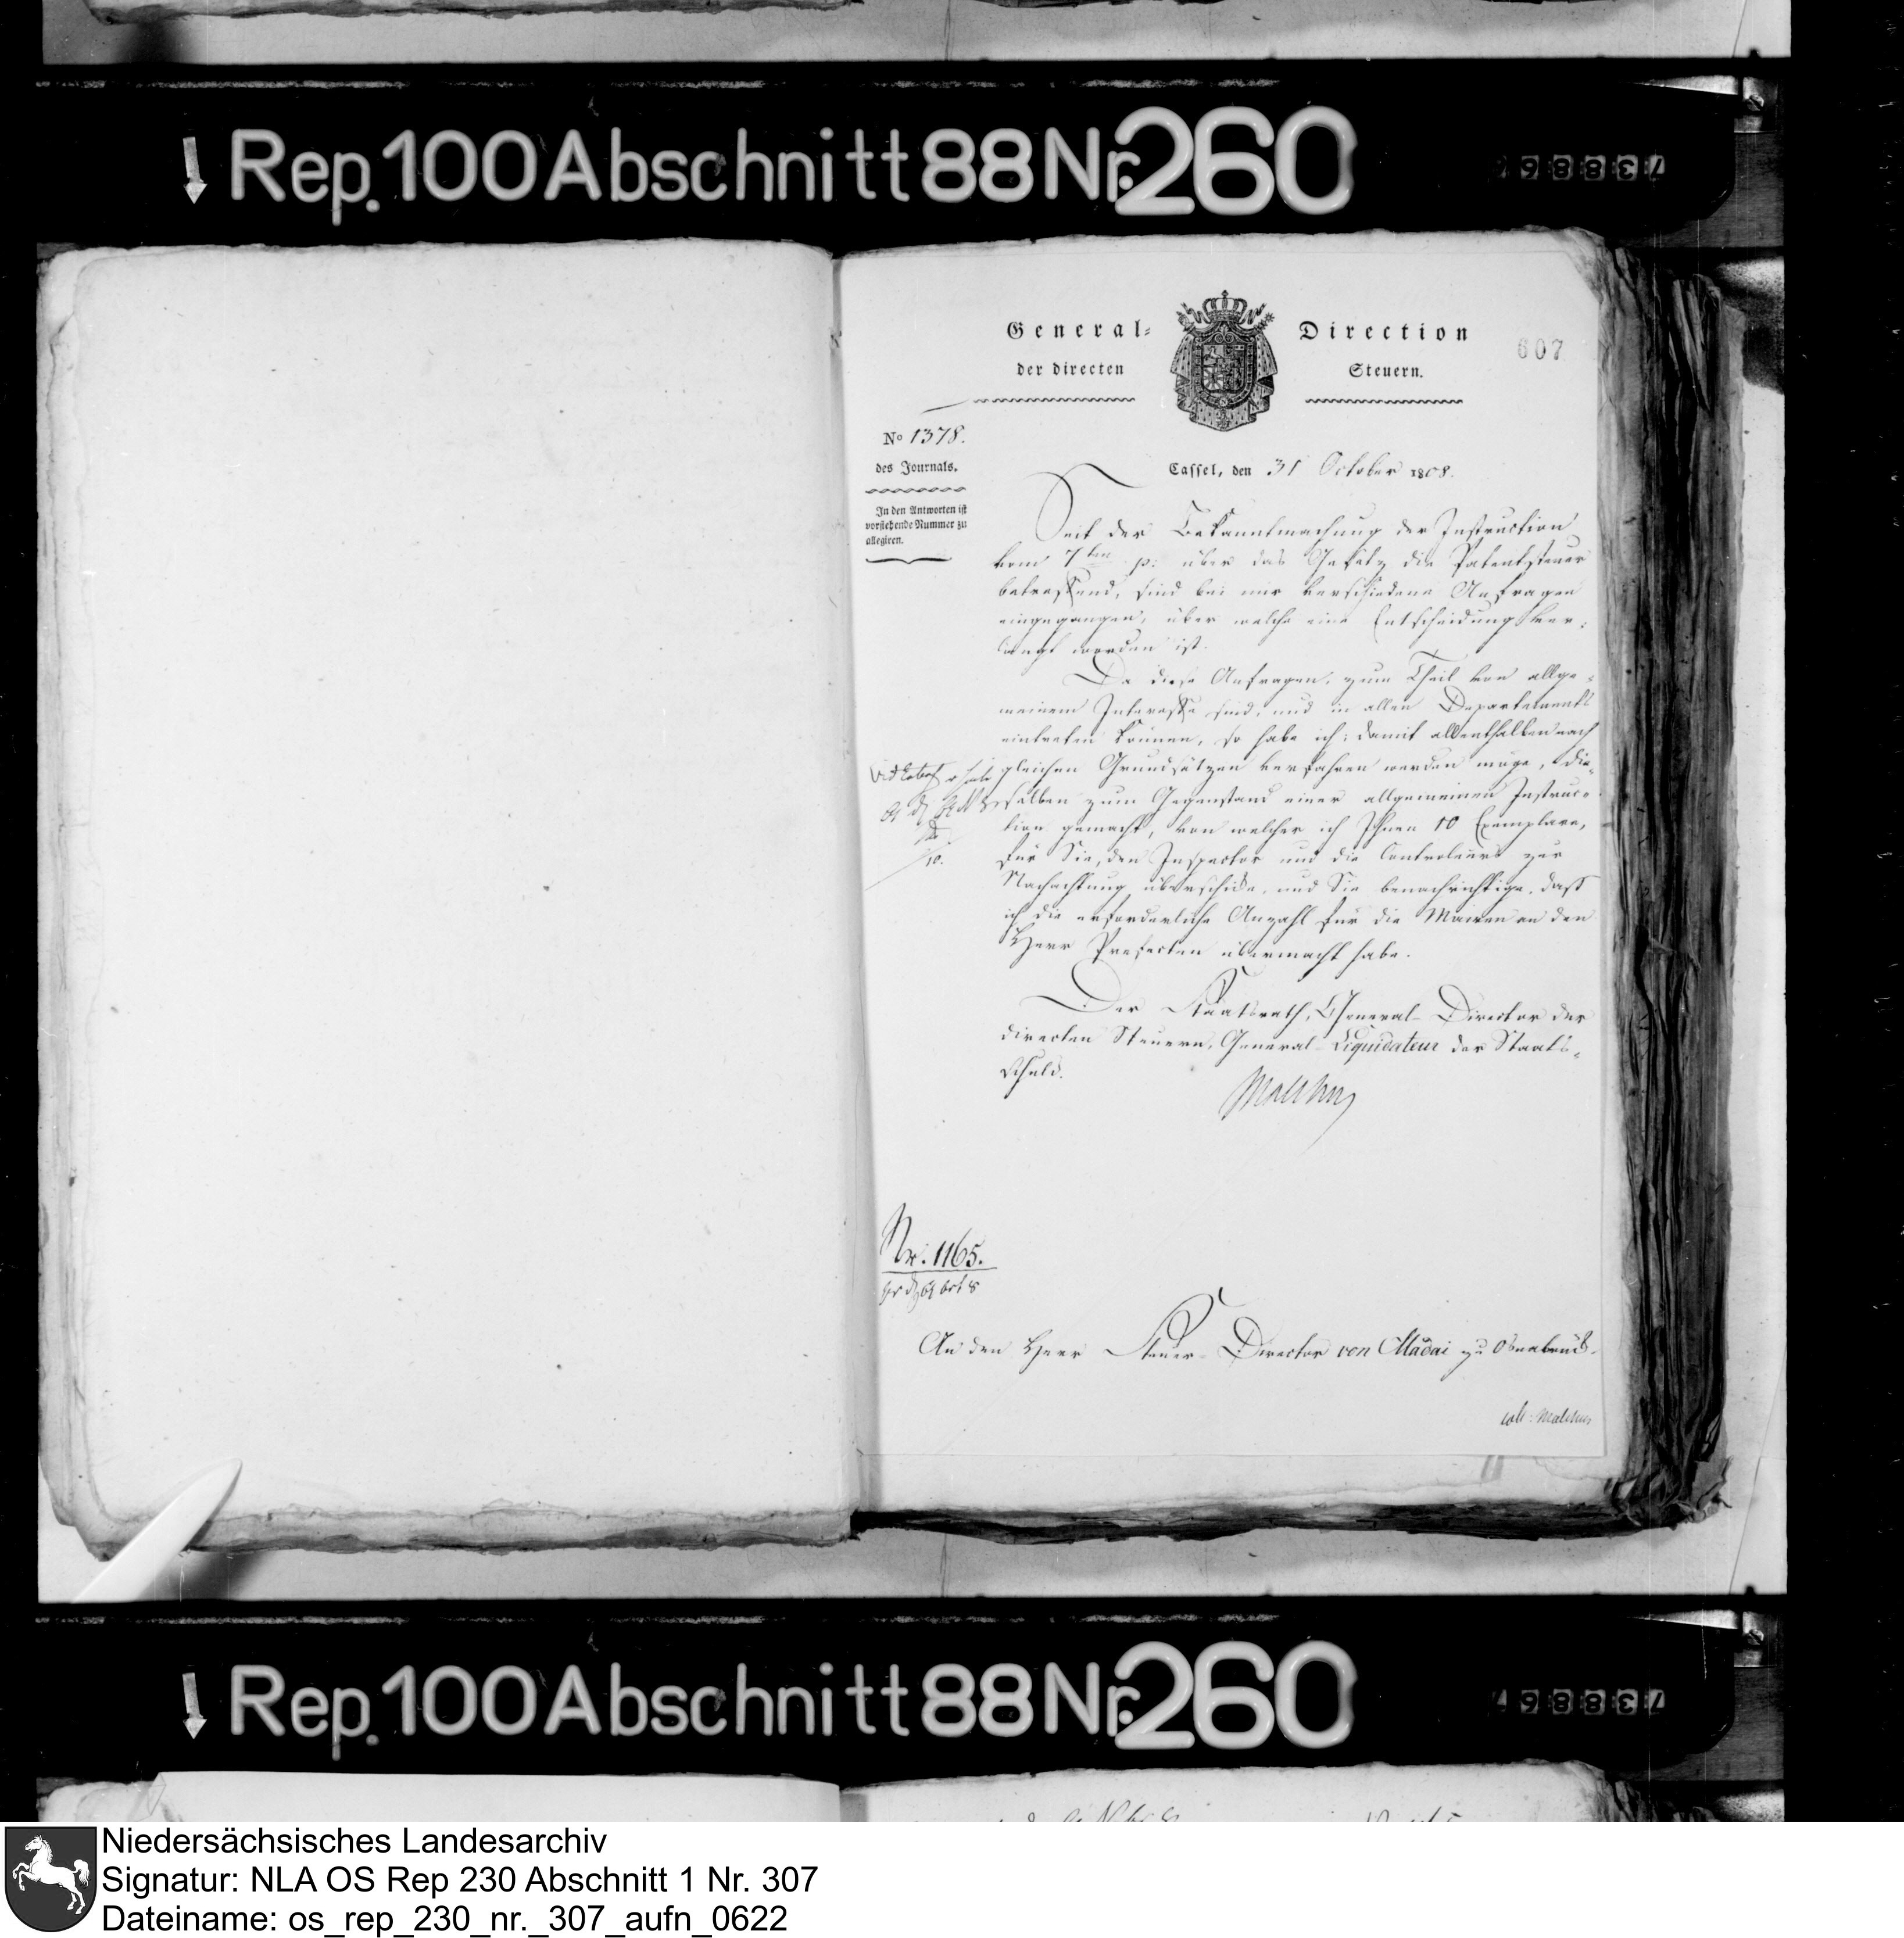 Rep. 100 Abschnitt 88 Nr. 260
General-Direction
der directen Steuern.
607
No 1378.
des Journals.
In den Antworten ist
vorstehende Nummer zu
allegiren.
Cassel, den 31 October 1808.
Seit der Bekanntmachung der Instruction
vom 7ten p: über das Gesetz die Patentsteuer
betreffend, sind bei mir verschiedene Anfragen
eingegangen, über welche eine Entscheidung ver-
langt worden ist.
Da diese Anfragen, zum Theil von allge-
meinem Interesse sind, und in allen Departements
eintreten können, so habe ich, damit allenthalben nach
gleichen Grundsätzen verfahren werden möge, die-
selben zum Gegenstand einer allgemeinen Instruc-
tion gemacht, von welcher ich Ihnen 10 Exemplare,
für Sie, den Inspector und die Controleurs zur
Nachachtung überschicke, und Sie benachrichtige, daß
ich die erforderliche Anzahl für die Mairen an den
Herr Prefecten übermacht habe.
Der Staatsrath, General-Director der
directen Steuern, General-Liquidateur der Staats-
schuld.
Malchus
Nr. 1165.
An den Herr Steuer-Director von Mádai zu Osnabrück.
coll: Malchus
Rep. 100 Abschnitt 88 Nr. 260
Niedersächsisches Landesarchiv
Signatur: NLA OS Rep 230 Abschnitt 1 Nr. 307
Dateiname: os_rep_230_nr._307_aufn_0622